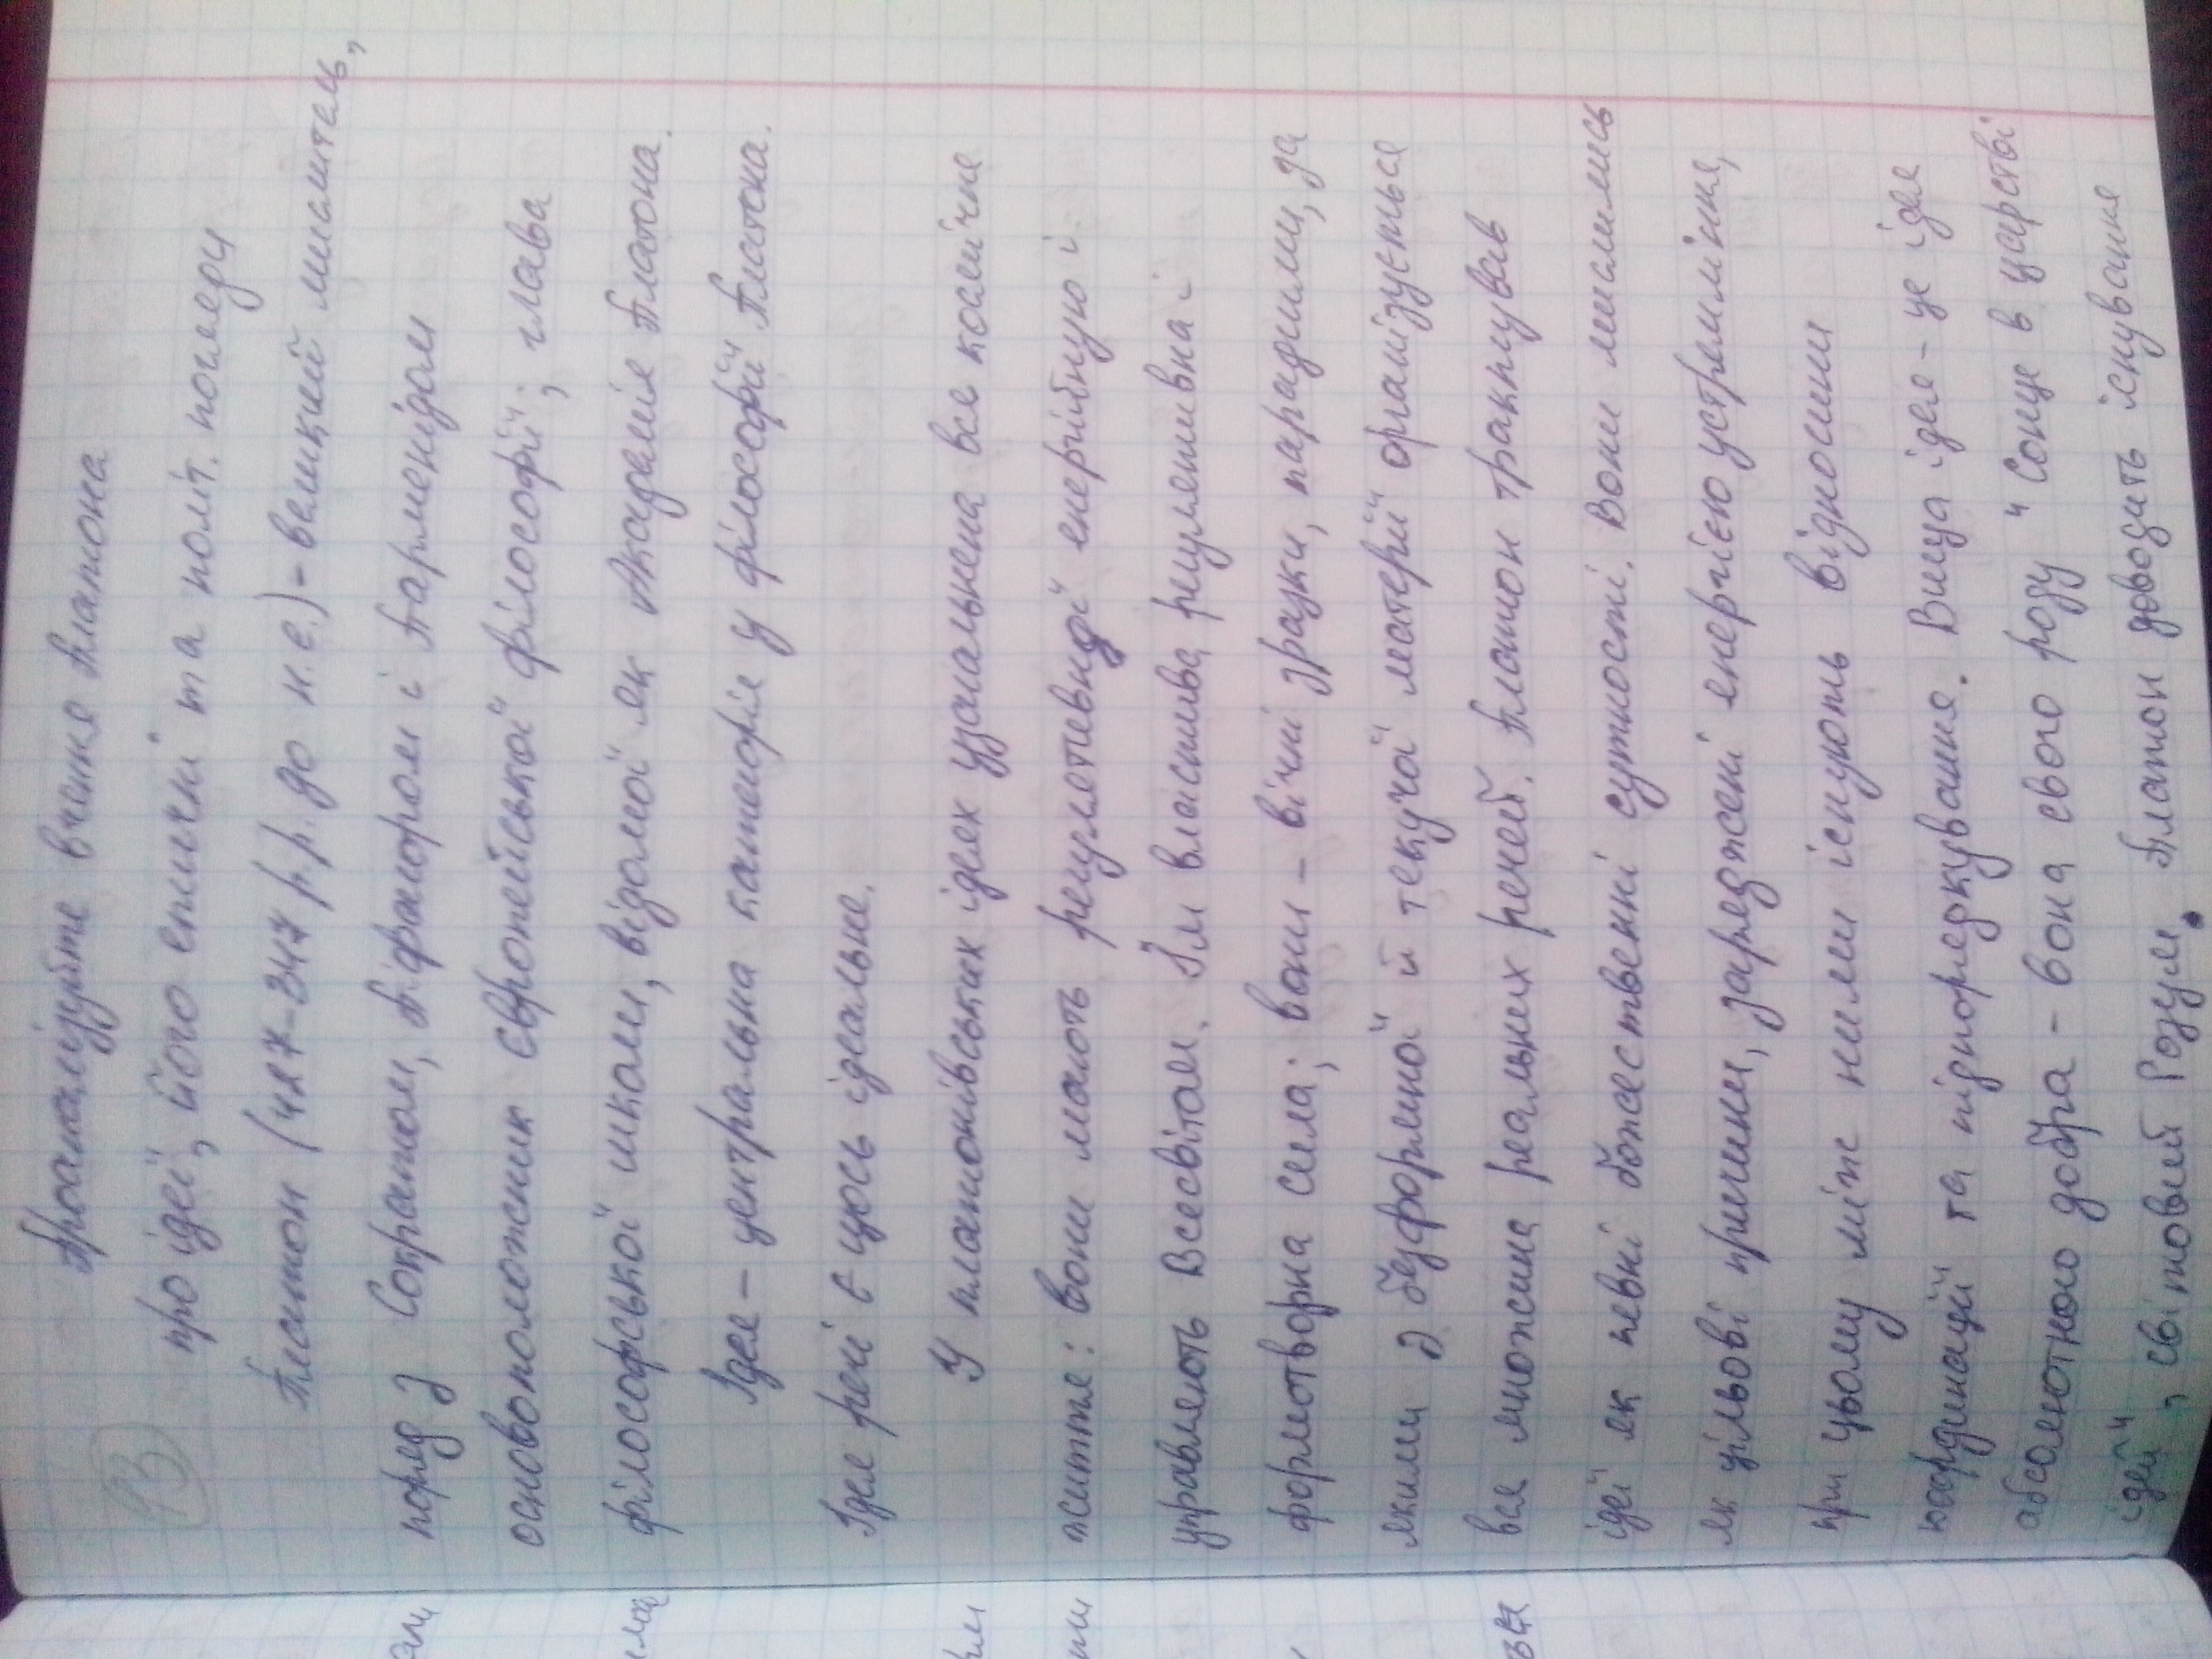 Проаналізуйте вчення Платона
93
про ідеї, його етичні та політ. погляди
Платон (427-347 р.р. до н.е.) - великий мислитель,
поряд з Сократом, Піфагором і Парменідом
основоположник європейської філософії; глава
філософської школи, відомої як Академія Платона.
Ідея - центральна категорія у філософії Платона.
Ідея речі є щось ідеальне.
У платонівських ідеях узагальнена все космічне
життя: вони мають регулятивної енергійную і
управляють Всесвітом. Їм властива регулятивна і
формотворна сила; вони - вічні зразки, парадигми, за
якими з безформної й текучої матерії організується
вся множина реальних речей. Платон трактував
ідеї як певні божественні сутності. Вони мислились
як цільові причини, заряджені енергією устремління,
при цьому між ними існують відносини
координації та підпорядкування. Вища ідея - це ідея
абсолютного добра - вона свого роду "Сонце в царстві
ідей", світовий Розум. Платон доводить існування